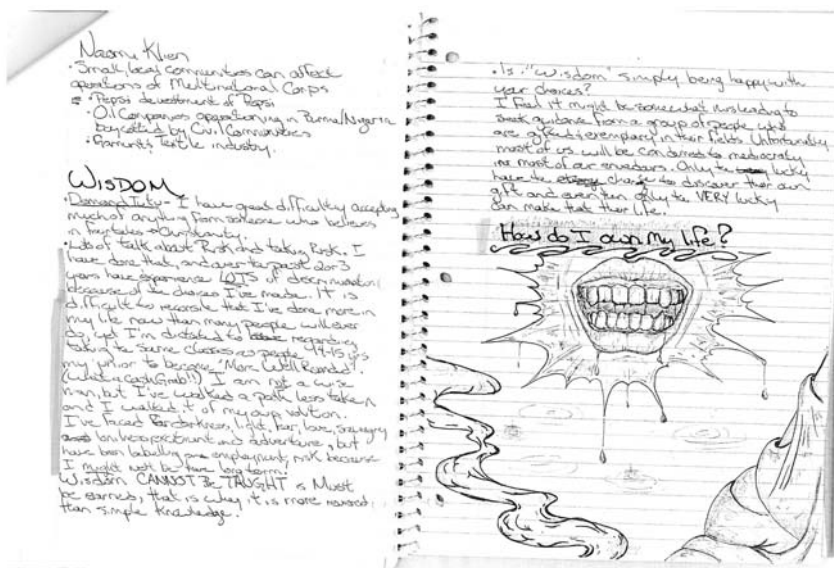 Naomi Klien
• Small, local communities can affect
operations of Multinational Corps
• Pepsi devestment of Pepsi
• Oil Companies operationing in Burma/Nigeria
boycotted by Civil Communities
• Garments Textile industry.
WISDOM
• Desmond Tutu - I have great difficulty accepting
much of anything from someone who believes
in fairytales → Christianity.
• Lots of talk about Risk and taking Risk. I
have done that, and over the past 2 or 3
years have experience LOTS of descrimination
because of the choices I've made. It is
difficult to reconsile that I've done more in
my life now than many people will ever
do, yet I'm dictated to regarding
taking the same classes as people 14-15 yrs
my junior to become "More Well Rounded".
(What a Cash Grab!!) I am not a wise
man, but I've walked a path less taken
and I walked it of my own volition.
I've faced darkness, light, fear, love, savagery
excitment and adventure, but
have been labelled employment risk because
I might not be here long term!
Wisdom CANNOT BE TAUGHT it Must
be earned, that is why it is more revered
than simple knowledge.
• Is "wisdom" simply being happy with
your choices?
I feel it might be somewhat misleading to
seek guidance from a group of people who
are gifted & exemplary in their fields. Unfortunatly
most of us will be condemed to mediocraty
in most of our envedors. Only the lucky
have the chance to discover their own
gift and even then only the VERY lucky
can make that their life.
How do I own my life?